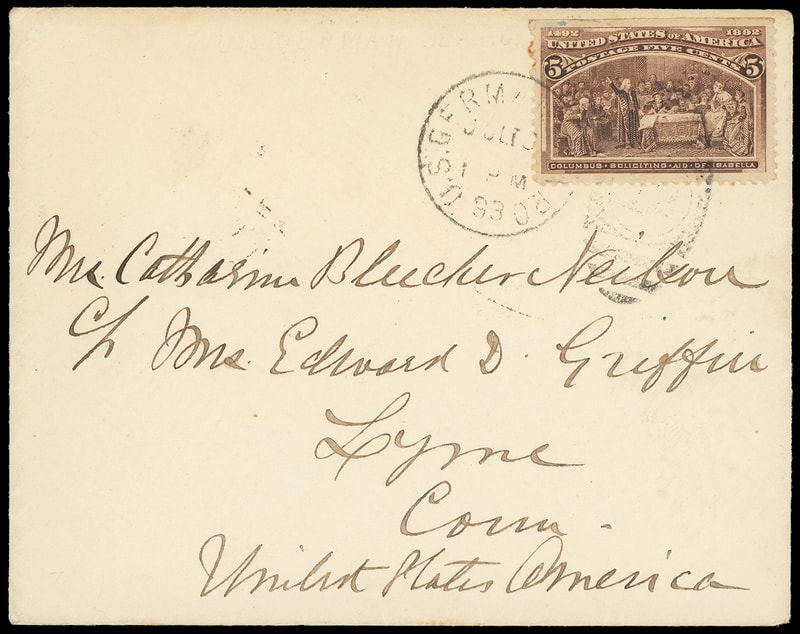 1492 1892
UNITED STATES OF AMERICA
POSTAGE FIVE CENTS
5 5
COLUMBUS SOLICITING AID OF ISABELLA
U.S. GERMA
1 PM
93
Catharine Bleecker Neilson
c/o Mrs. Edward D. Griffin
Lyme
Conn.
United States America